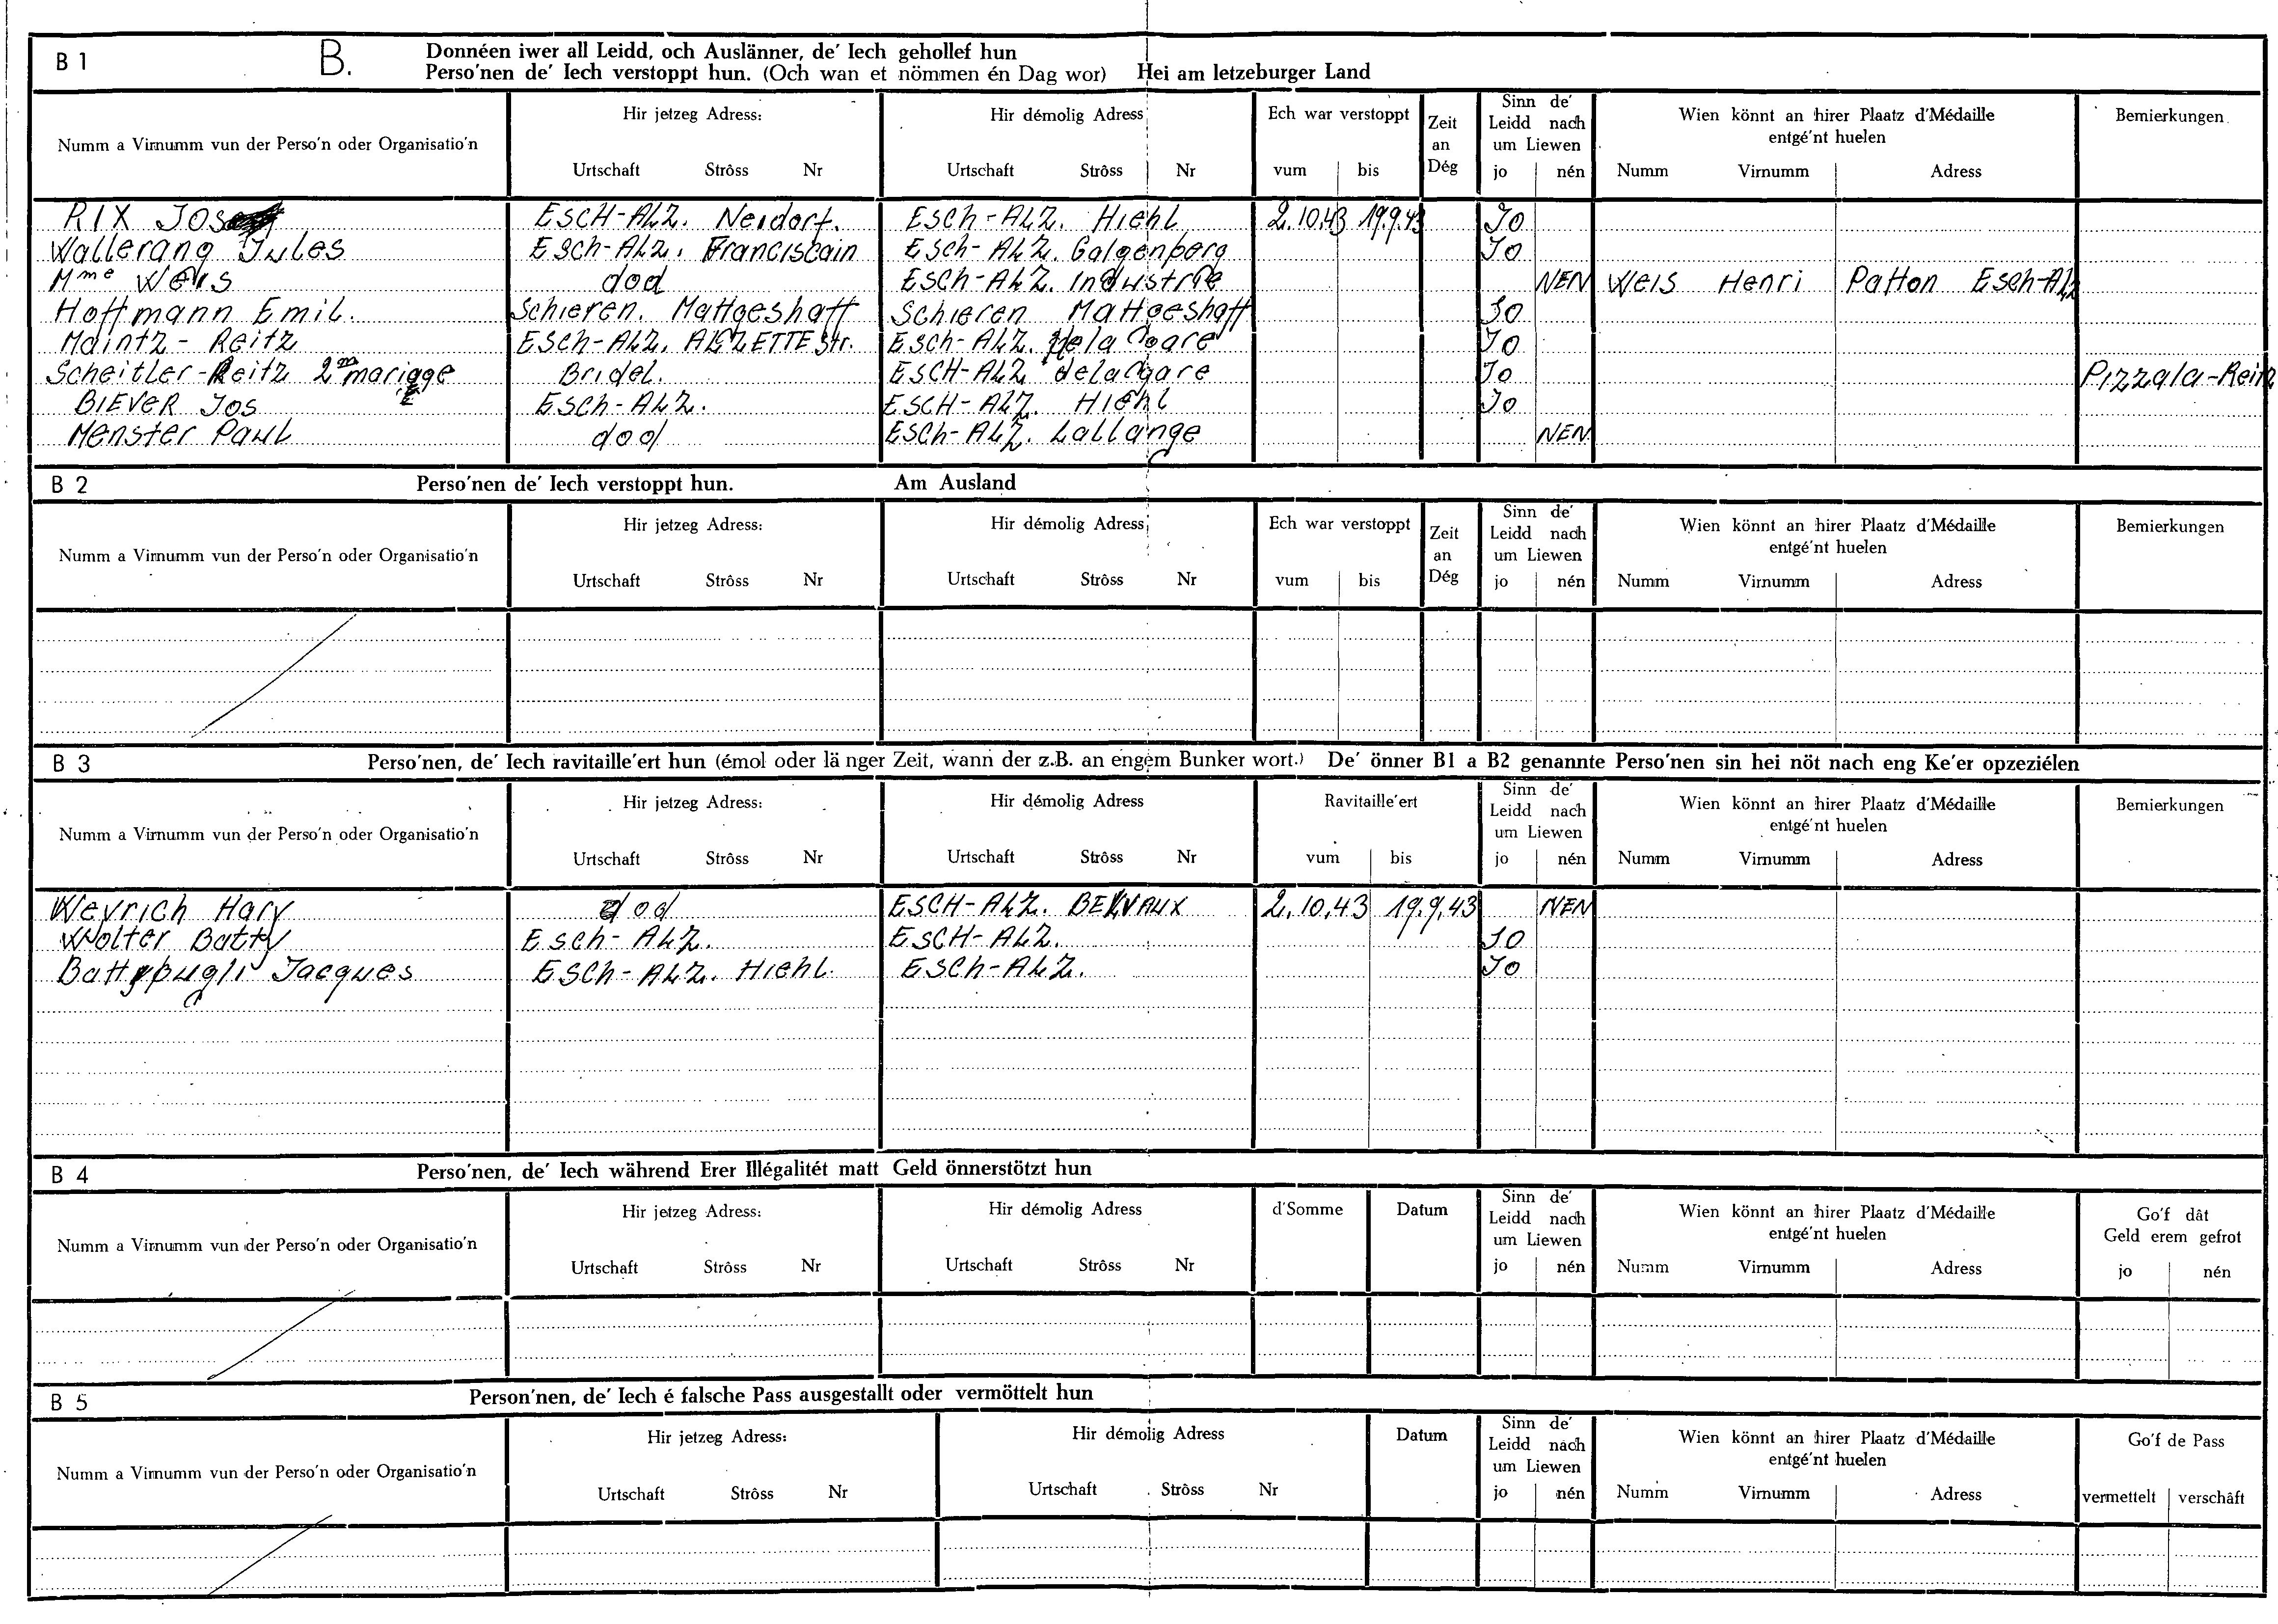 B 1 B. Donnéen iwer all Leidd, och Auslänner, de' Iech gehollef hun
Perso'nen de' Iech verstoppt hun. (Och wan et nömmen én Dag wor) Hei am letzeburger Land
Numm a Virnumm vun der Perso'n oder Organisatio'n
Hir jetzeg Adress:
Urtschaft Strôss Nr
Hir démolig Adress
Urtschaft Strôss Nr
Ech war verstoppt
vum bis
Zeit
an
Dég
Sinn de'
Leidd nach
um Liewen
jo nén
Wien könnt an hirer Plaatz d'Médaille
entgé'nt huelen
Numm Virnumm Adress
Bemierkungen
RIX JOS ESCH-ALZ. Neidorf. ESCH-ALZ. Hiehl 2.10.43 19.9.43 JO
Wallerang Jules ESch-ALZ. Franciscain ESch-ALZ. Galgenberg JO
Mme Weis dod ESch-ALZ. Industrie NEN Weis Henri Patton Esch-Alz
Hoffmann Emil. Schieren. Mattgeshaff Schieren Mattgeshaff JO
Maintz - Reitz ESch-ALZ. ALZETTE str. Esch-ALZ. de la Gare JO
Scheitler-Reitz 2m mariage Bridel. ESCH-ALZ de la Gare JO Pizzala-Reitz
BIEVER JOS ESch-ALZ. ESCH-ALZ. Hiehl JO
Menster Paul dod ESch-ALZ. Lallange NEN
B 2 Perso'nen de' Iech verstoppt hun. Am Ausland
Numm a Virnumm vun der Perso'n oder Organisatio'n
Hir jetzeg Adress:
Urtschaft Strôss Nr
Hir démolig Adress
Urtschaft Strôss Nr
Ech war verstoppt
vum bis
Zeit
an
Dég
Sinn de'
Leidd nach
um Liewen
jo nén
Wien könnt an hirer Plaatz d'Médaille
entgé'nt huelen
Numm Virnumm Adress
Bemierkungen
B 3 Perso'nen, de' Iech ravitaille'ert hun (émol oder länger Zeit, wann der z.B. an engem Bunker wort.) De' önner B1 a B2 genannte Perso'nen sin hei nöt nach eng Ke'er opzeziélen
Numm a Virnumm vun der Perso'n oder Organisatio'n
Hir jetzeg Adress:
Urtschaft Strôss Nr
Hir démolig Adress
Urtschaft Strôss Nr
Ravitaille'ert
vum bis
Sinn de'
Leidd nach
um Liewen
jo nén
Wien könnt an hirer Plaatz d'Médaille
entgé'nt huelen
Numm Virnumm Adress
Bemierkungen
Weyrich Hary dod ESCH-ALZ. BELVAUX 2.10.43 19.9.43 NEN
Wolter Batty Esch-ALZ. ESCH-ALZ. JO
Jacques ESch-ALZ. Hiehl. ESch-ALZ. JO
B 4 Perso'nen, de' Iech während Erer Illégalitét matt Geld önnerstötzt hun
Numm a Virnumm vun der Perso'n oder Organisatio'n
Hir jetzeg Adress:
Urtschaft Strôss Nr
Hir démolig Adress
Urtschaft Strôss Nr
d'Somme
Datum
Sinn de'
Leidd nach
um Liewen
jo nén
Wien könnt an hirer Plaatz d'Médaille
entgé'nt huelen
Numm Virnumm Adress
Go'f dât
Geld erem gefrot
jo nén
B 5 Person'nen, de' Iech é falsche Pass ausgestallt oder vermöttelt hun
Numm a Virnumm vun der Perso'n oder Organisatio'n
Hir jetzeg Adress:
Urtschaft Strôss Nr
Hir démolig Adress
Urtschaft Strôss Nr
Datum
Sinn de'
Leidd nach
um Liewen
jo nén
Wien könnt an hirer Plaatz d'Médaille
entgé'nt huelen
Numm Virnumm Adress
Go'f de Pass
vermettelt verschâft